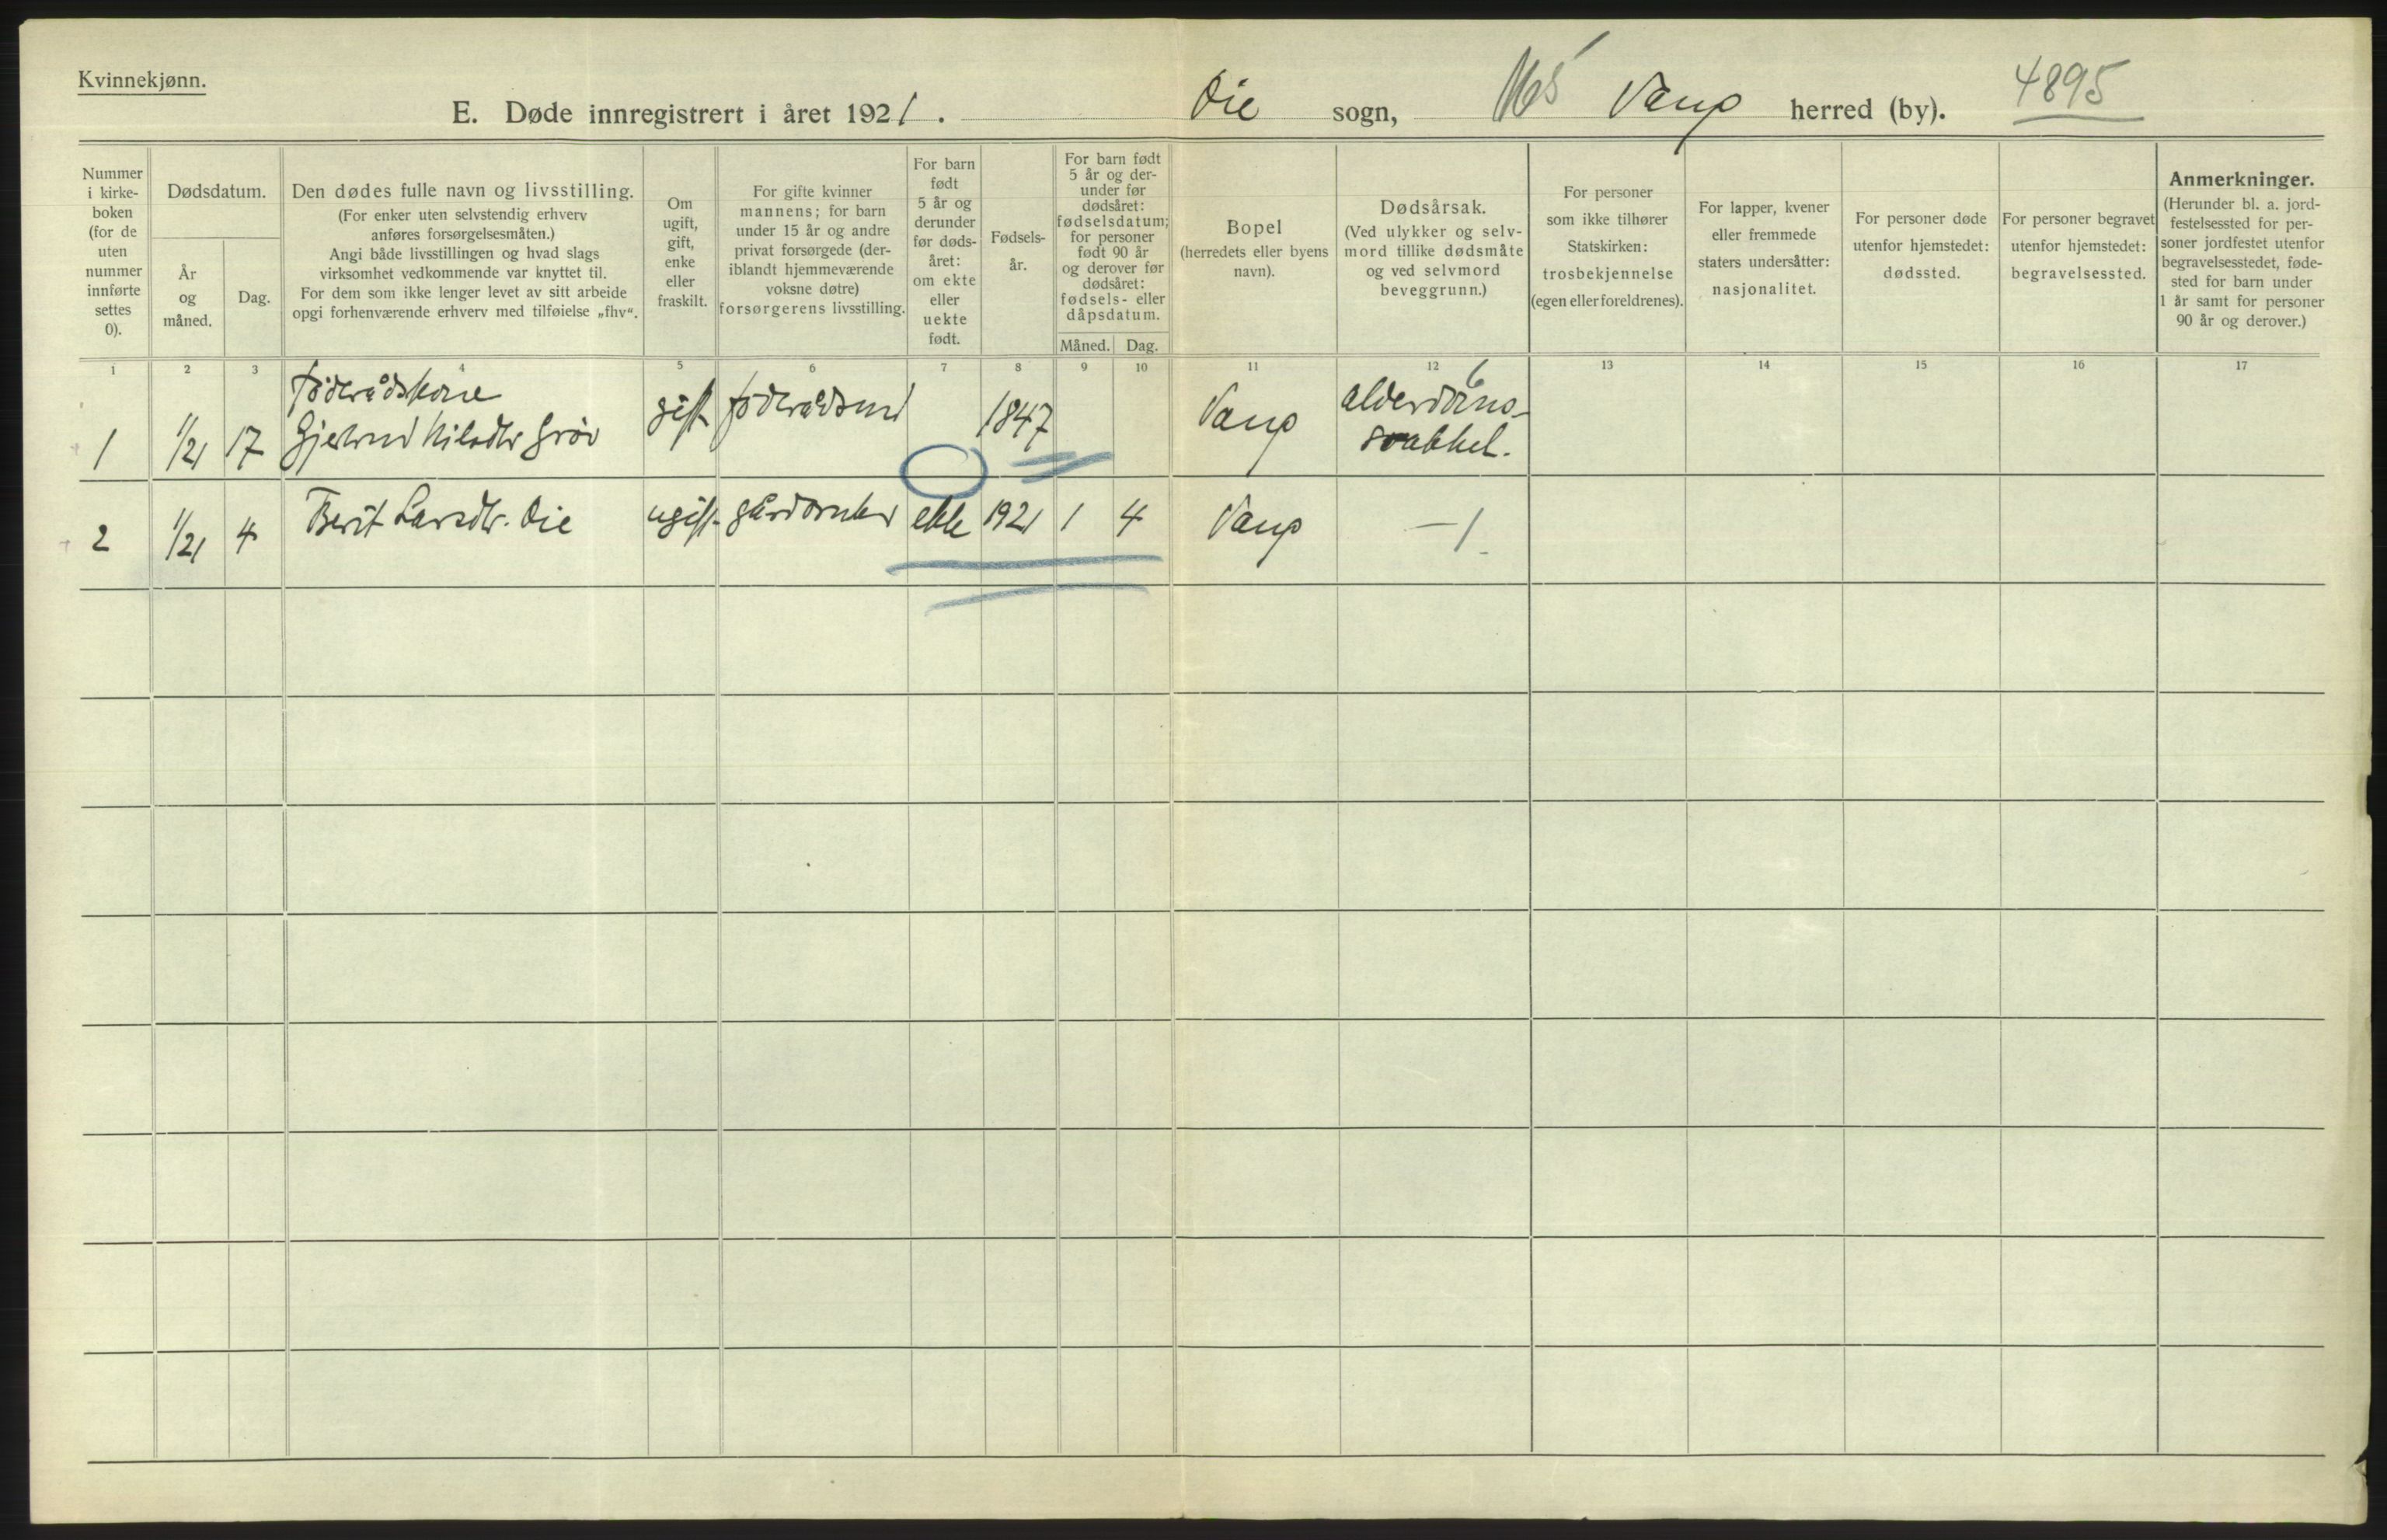 Kvinnekjønn.
E. Døde innregistrert i året 1921. Øie sogn, Vang herred (by). 4895
Nummer i kirke-boken (for de uten nummer innførte settes 0).
Dødsdatum.
År og måned.
Dag.
Den dødes fulle navn og livsstilling.
(For enker uten selvstendig erhverv
anføres forsørgelsesmåten.)
Angi både livsstillingen og hvad slags
virksomhet vedkommende var knyttet til.
For dem som ikke lenger levet av sitt arbeide
opgi forhenværende erhverv med tilføielse „fhv“.
Om
ugift,
gift,
enke
eller
fraskilt.
For gifte kvinner
mannens; for barn
under 15 år og andre
privat forsørgede (der-
iblandt hjemmeværende
voksne døtre)
forsørgerens livsstilling.
For barn
født
5 år og
derunder
før døds-
året:
om ekte
eller
uekte
født.
Fødsels-
år.
For barn født
5 år og der-
under før
dødsåret:
fødselsdatum;
for personer
født 90 år
og derover før
dødsåret:
fødsels- eller
dåpsdatum.
Måned. Dag.
Bopel
(herredets eller byens
navn).
Dødsårsak.
(Ved ulykker og selv-
mord tillike dødsmåte
og ved selvmord
beveggrunn.)
For personer
som ikke tilhører
Statskirken:
trosbekjennelse
(egen eller foreldrenes).
For lapper, kvener
eller fremmede
staters undersåtter:
nasjonalitet.
For personer døde
utenfor hjemstedet:
dødssted.
For personer begravet
utenfor hjemstedet:
begravelsessted.
Anmerkninger.
(Herunder bl. a. jord-
festelsessted for per-
soner jordfestet utenfor
begravelsesstedet, føde-
sted for barn under
1 år samt for personer
90 år og derover.)
1 2 3 4 5 6 7 8 9 10 11 12 13 14 15 16 17
6
Föderådskone
1 1/21 17 Gjertrud Nilsdtr Grøv gift föderådsmd 1847 Vang alderdoms-
svakhet.
2 1/21 4 Berit Larsdtr. Øie ugift gårdbruker ekte 1921 1 4 Vang —1